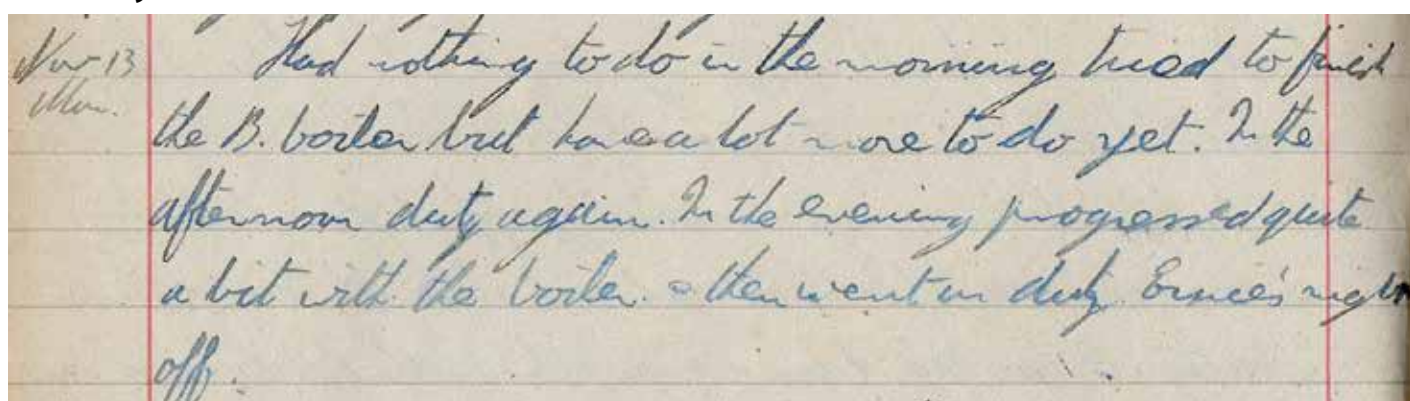 Nov 13 Had nothing to do in the morning tried to finish
Mon. the B. boiler but have a lot more to do yet. In the
afternoon duty again. In the evening progressed quite
a bit with the boiler. & then went on duty. Ernie's night
off.